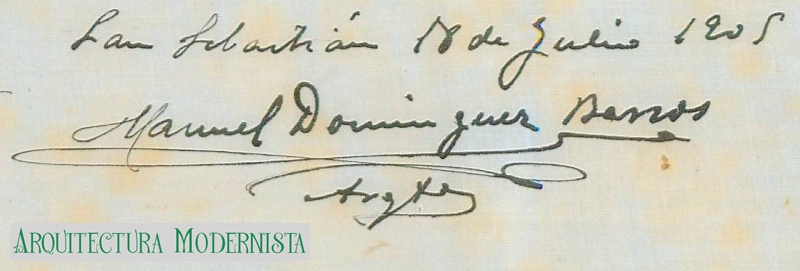 San Sebastián 18 de Julio 1905
Manuel Dominguez Barros
Arqto
ARQUITECTURA MODERNISTA